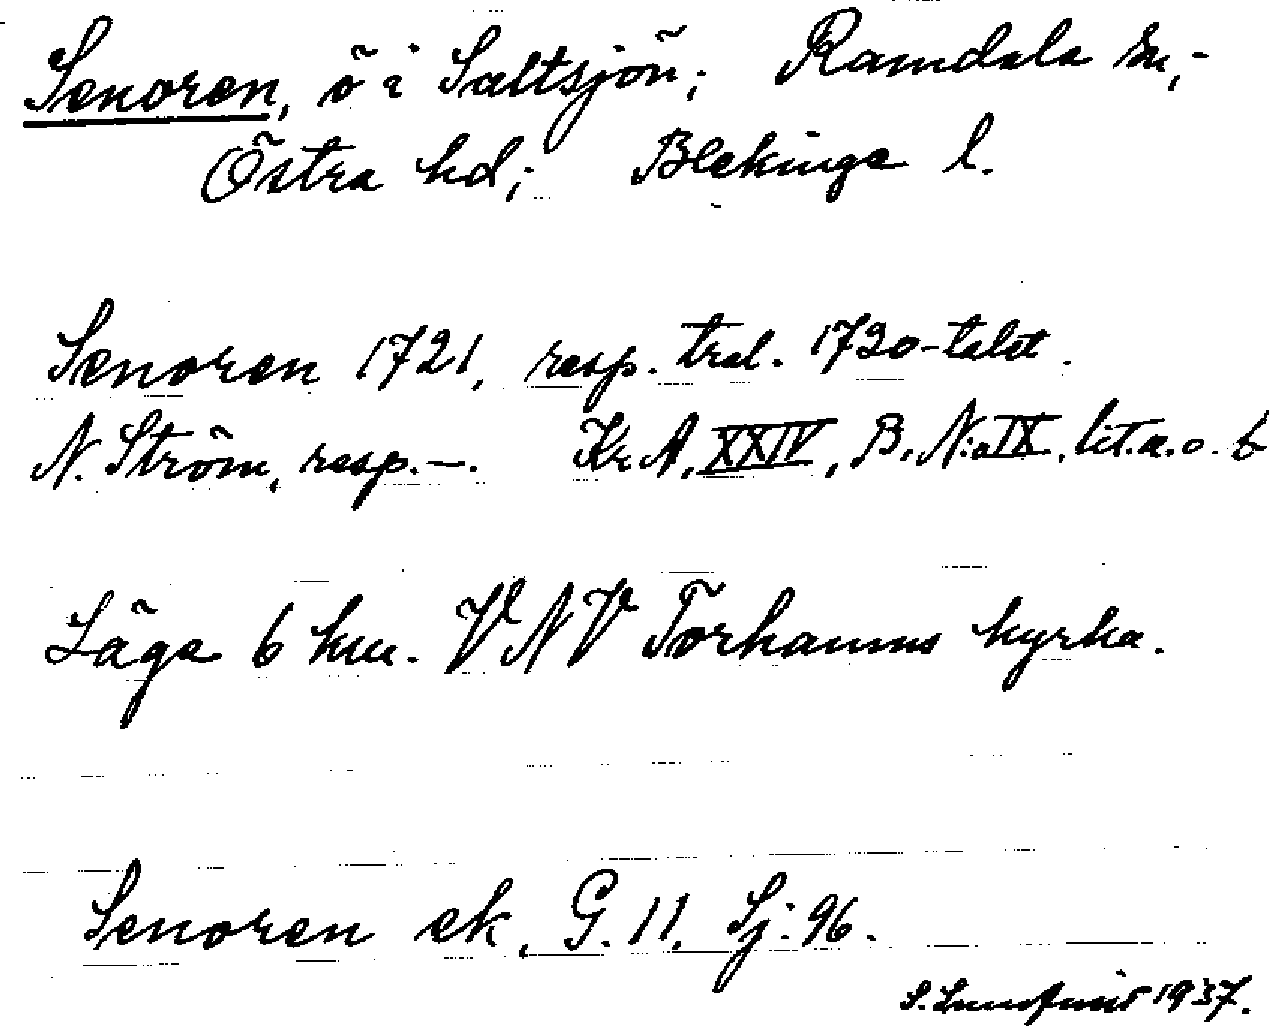 Senoren, ö i Saltsjön; Ramdala sn,-
Östra hd; Blekinge l.
Senoren 1721, resp. trol. 1730-talet.
N. Ström, resp. —. Kr A, XXIV, B, N:o IX, lit. a. o. b
Läge 6 km. VNV Torhamns kyrka.
Senoren ek, G. 11, Sj: 96.
S. Lundqvist 1937.